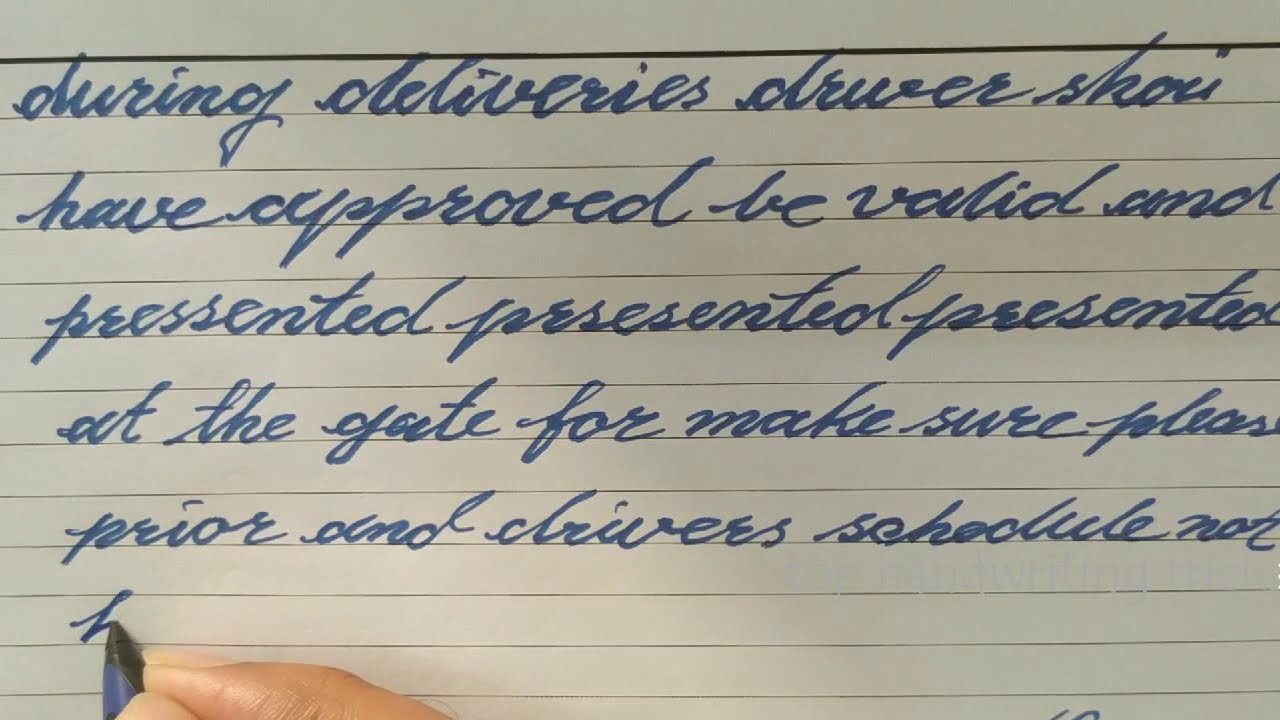 during deliveries druver shou
have approved be valid and
pressented prsesented presented
at the gate for make sure please
prior and drivers schedule not
top handwriting tric